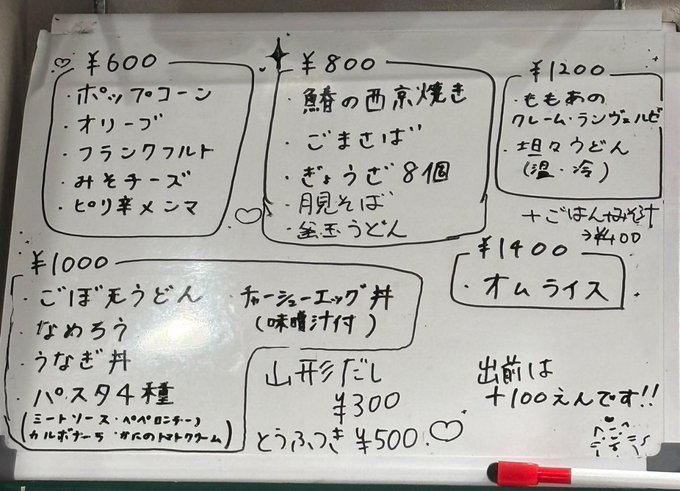 ¥600
・ポップコーン
・オリーブ
・フランクフルト
・みそチーズ
・ピリ辛メンマ
¥800
・鰆の西京焼き
・ごまさば
・ぎょうざ 8個
・月見そば
・釜玉うどん
¥1200
・ももあの
クレーム・ランヴェルゼ
・坦々うどん
(温・冷)
+ごはん+みそ汁
→¥400
¥1400
・オムライス
¥1000
・ごぼ天うどん
・なめろう
・うなぎ丼
・パスタ4種
(ミートソース・ペペロンチーノ
カルボナーラ・かにのトマトクリーム)
・チャーシューエッグ丼
(味噌汁付)
山形だし
¥300
とうふつき ¥500
出前は
+100えんです!!